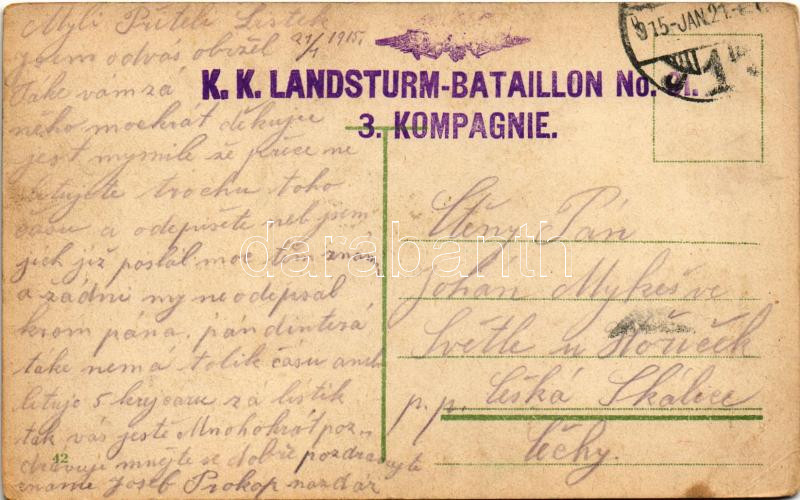 Milí Příteli Lístek
jsem od vás obržel 21/1 1915.
Take vám za
něho mockrát děkuju
jest mymile že přece ne
litujete trochu toho
času a odepíšete neb jsem
jich již poslal moc tem znám
a žádni my neodepsal
krom pána. pán
take nemá tolik času aneb
lituje 5 krejcaru za lístik
tak vás jestě Mnohokrát poz-
dravuji mnějte se dobře pozdravujte
známe Josef Prokop nazdar
42
K. K. LANDSTURM-BATAILLON No.
3. KOMPAGNIE.
915-JAN.21.
Ctěny Pán
Johan Mykeš ve
Světle u
p.p. Česká Skálice
Čéchy.
darabanth